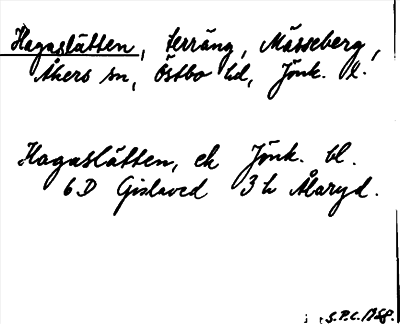 Hagaslätten, terräng, Mässeberg,
Åkers sn, Östbo hd, Jönk. l.
Hagaslätten, ek Jönk. bl.
6D Gislaved 3h Ålaryd.
S.P.C. 1968.